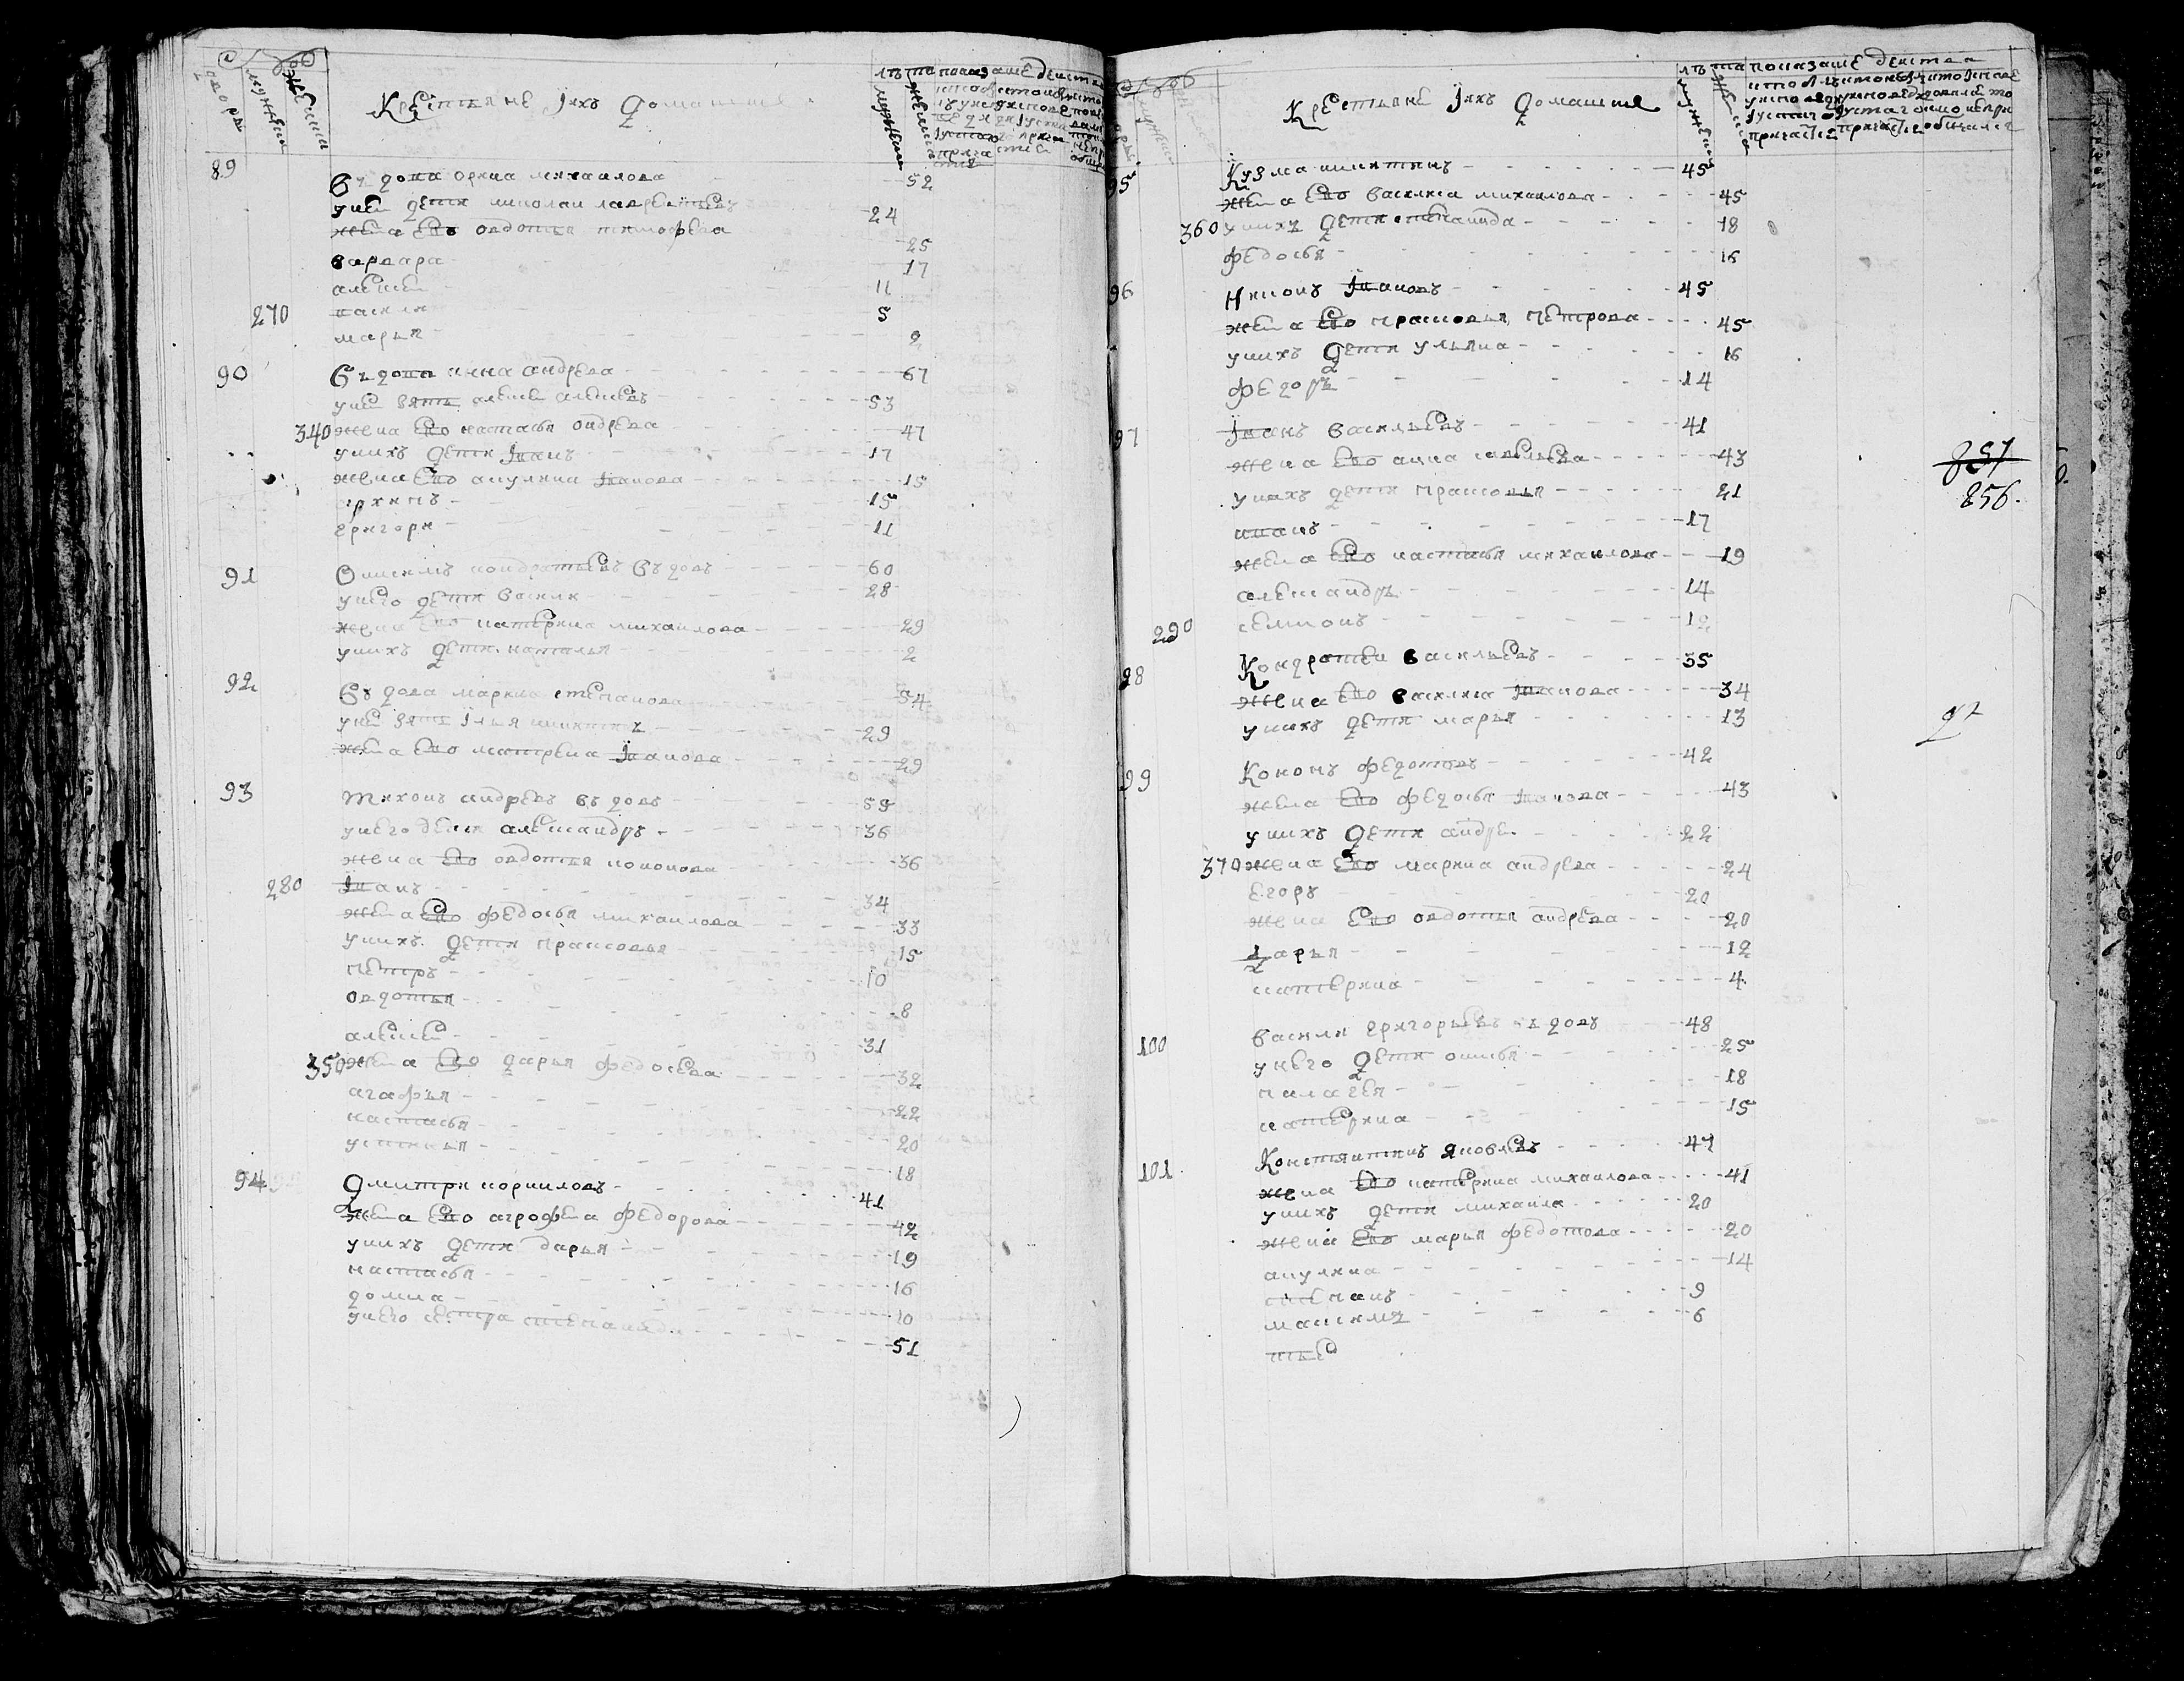 Крестьяне Їихъ домашние
лѣта показание действа
мужеска
женска
89 Въдова орина михаилова 52
унеи дети николаи лаврентьевъ 24
жена Ево овдотья тимофеева 25
варвара 17
алексеи 11
270 василеи 5
марья 9
90 Въдова анна андреева 67
унеи зять алексеи алексеевъ 53
340 жена Ево настасья ондреева 47
унихъ дети Їванъ 17
жена Ево акулина Їванова 15
архипъ 15
григори 11
91 Онисимъ кондратьевъ въдовъ 60
унего дети василеи 28
жена Ево катерина михаилова 29
унихъ дети наталья 2
92 Въдова марина степанова 54
унеи зять Їлья никитинъ 29
жена Ево матрена Їванова 29
93 Тихонъ андреевъ въдовъ 59
унего дети александръ 36
жена Ево овдотья кононова 36
280 Їванъ 34
жена Ево федосья михаилова 33
унихъ дети прасковья 15
петръ 10
овдотья 8
алексеи 31
350 жена Ево дарья федосеева 32
агафья 22
настасья 20
устинья 18
94 Дмитри корниловъ 41
жена Ево агрофена федорова 42
унихъ дети дарья 19
настасья 16
домна 10
унего сестра степанида 51
Крестьяне Їихъ домашние
лѣта показание действа
мужеска
женска
95 Кузма никитинъ 45
жена Ево василиса михаилова 45
360 унихъ дети степанида 18
федосья 16
96 Никонъ Ївановъ 45
жена Ево прасковья петрова 45
унихъ дети ульяна 16
федоръ 14
97 Їванъ васильевъ 41
жена Ево анна савельева 43
унихъ дети прасковья 21
иванъ 17
жена Ево настасья михаилова 19
александръ 14
290 семионъ 12
98 Кондратеи васильевъ 35
жена Ево василиса Їванова 34
унихъ дети марья 13
99 Кононъ федотовъ 42
жена Ево федосья Їванова 43
унихъ дети андреи 22
370 жена Ево марина андреева 24
Егоръ 20
жена Ево овдотья андреева 20
дарья 12
катерина 4
100 василеи григорьевъ въдовъ 48
унего дети онисья 25
палагея 18
катерина 15
101 Констянтинъ яковлевъ 47
жена Ево катерина михаилова 41
унихъ дети михаила 20
жена Ево марья федотова 20
акулина 14
степанъ 9
максимъ 6
857
856.